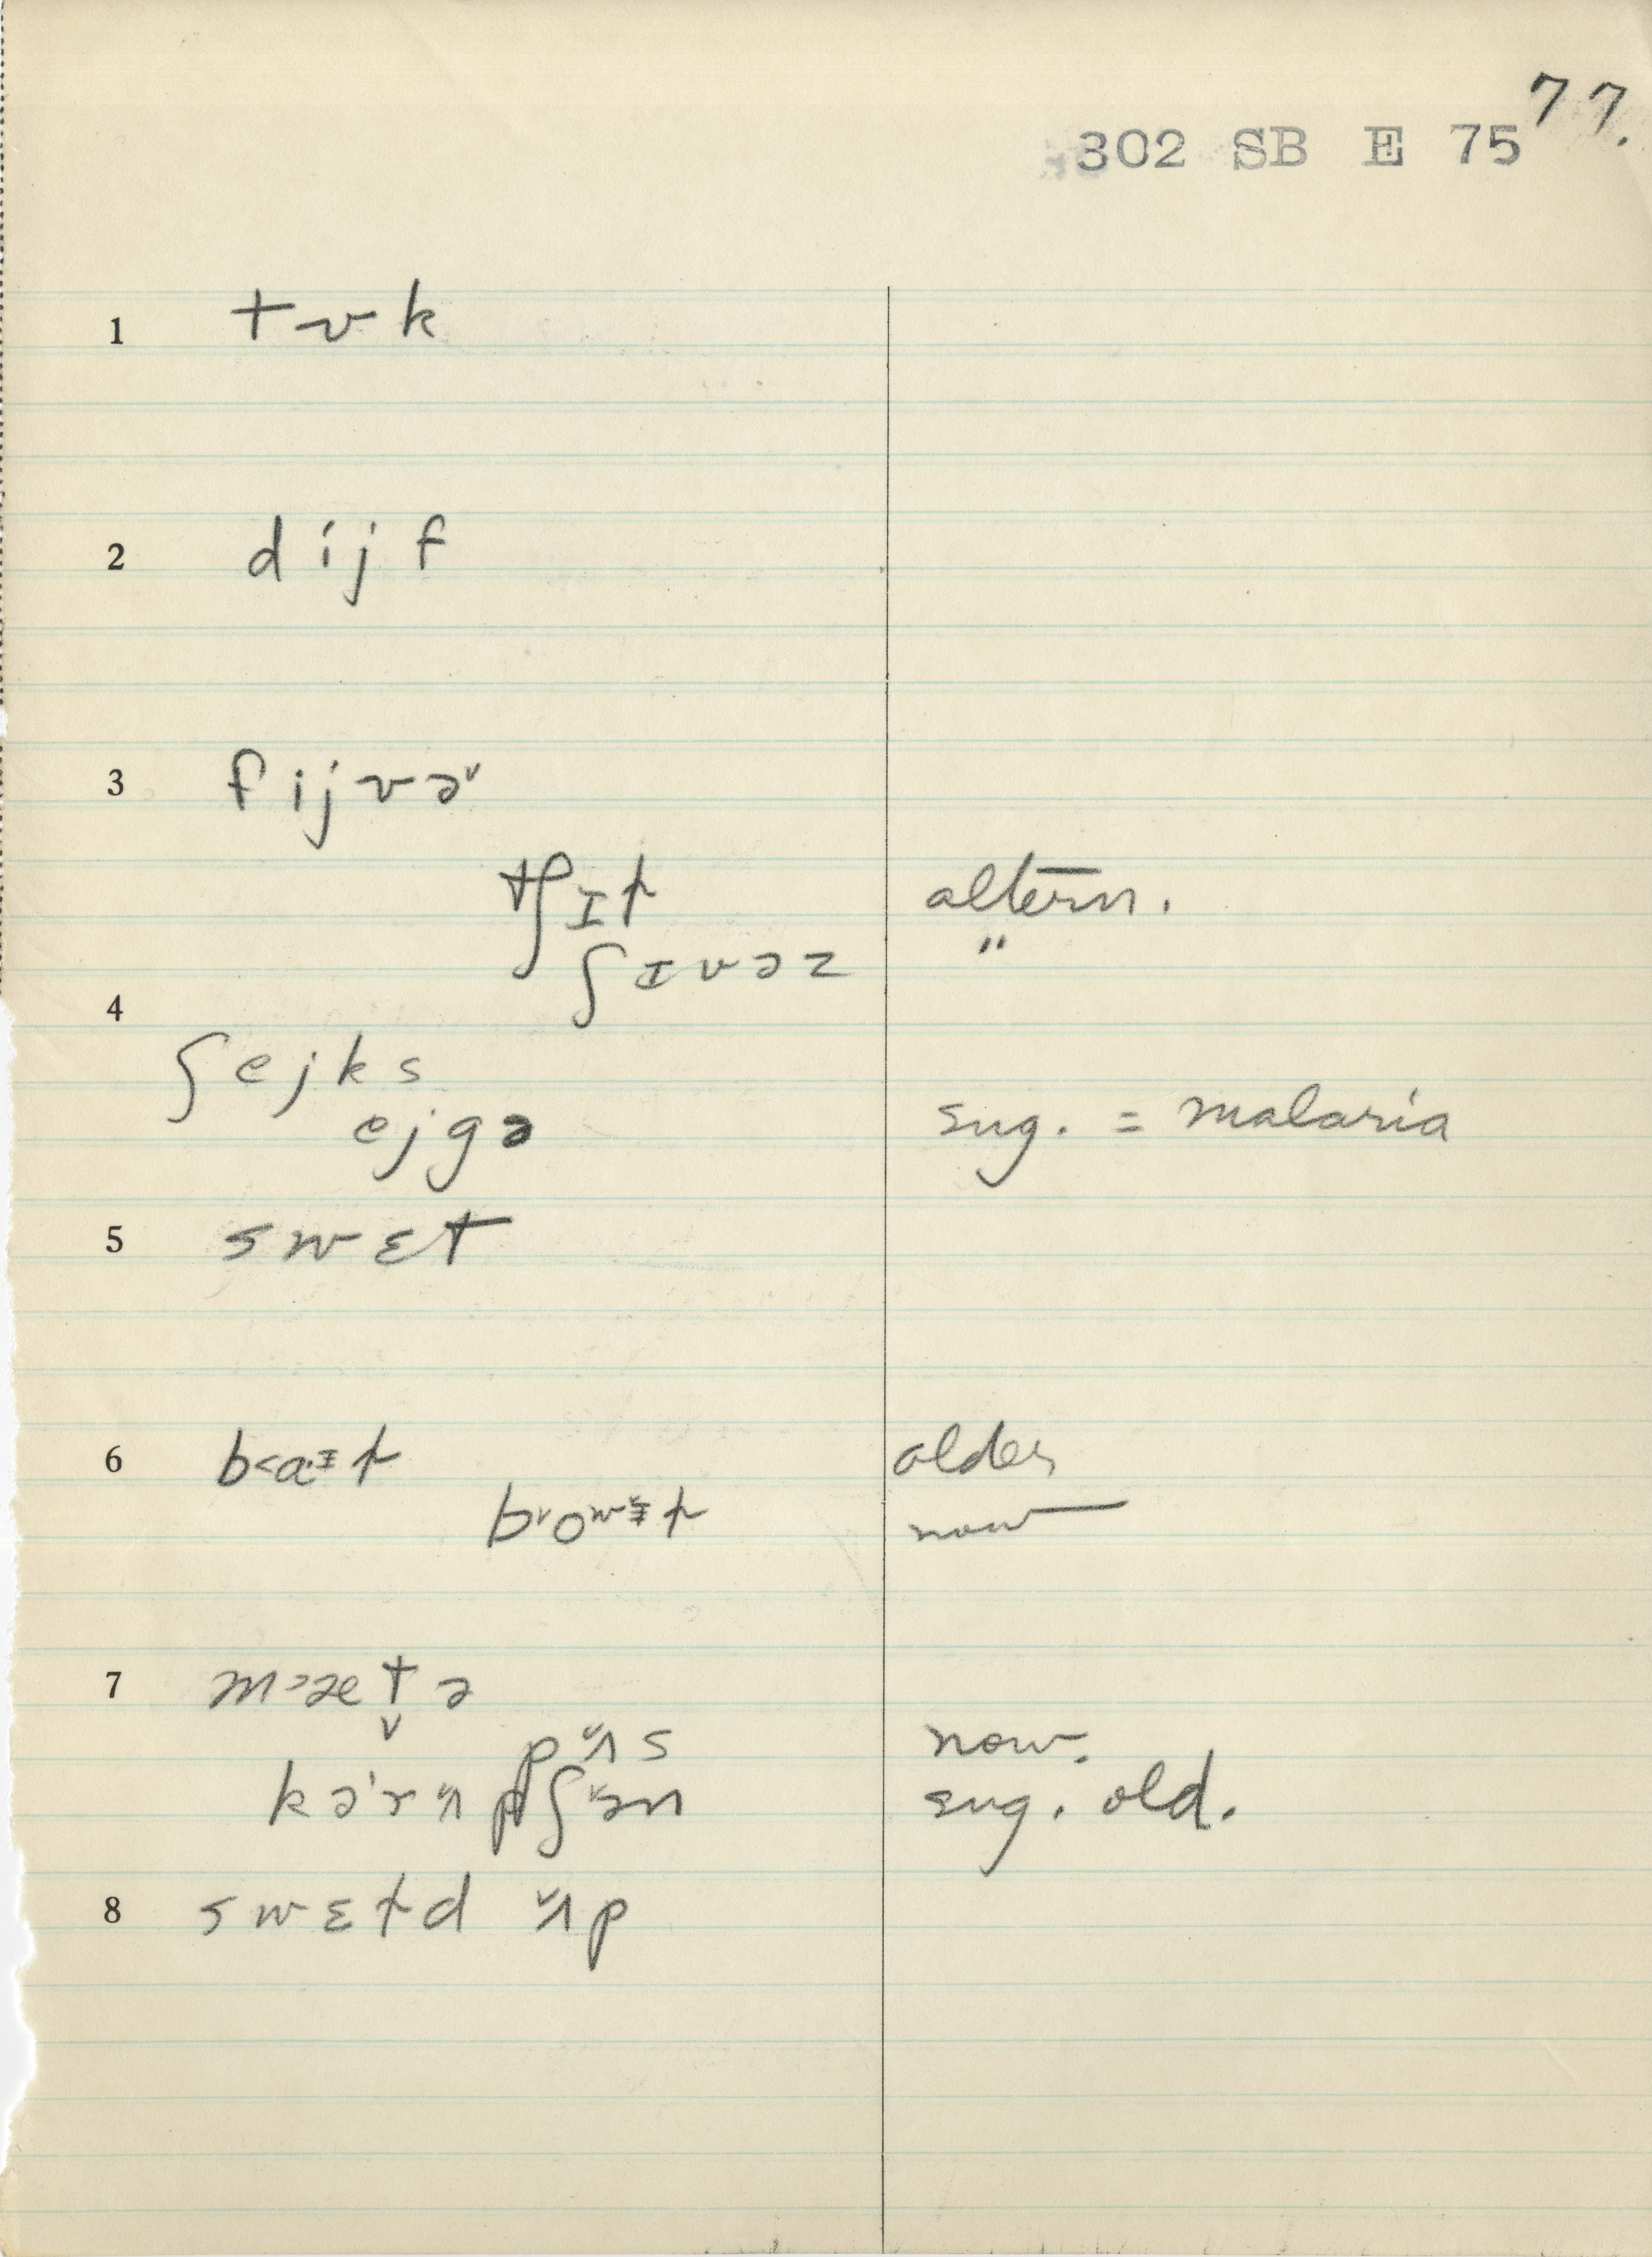 77.
302 SB E 75
1 tʊk
2 dijf
3 fijvə˅
tʃɪt altern.
ʃɪvəz "
4
ʃejks
ejgə sug. = malaria
5 swɛt
6 older
now
7 m˃ætə
pʌ̌s now.
sug. old.
8 swɛtd ʌ̌p